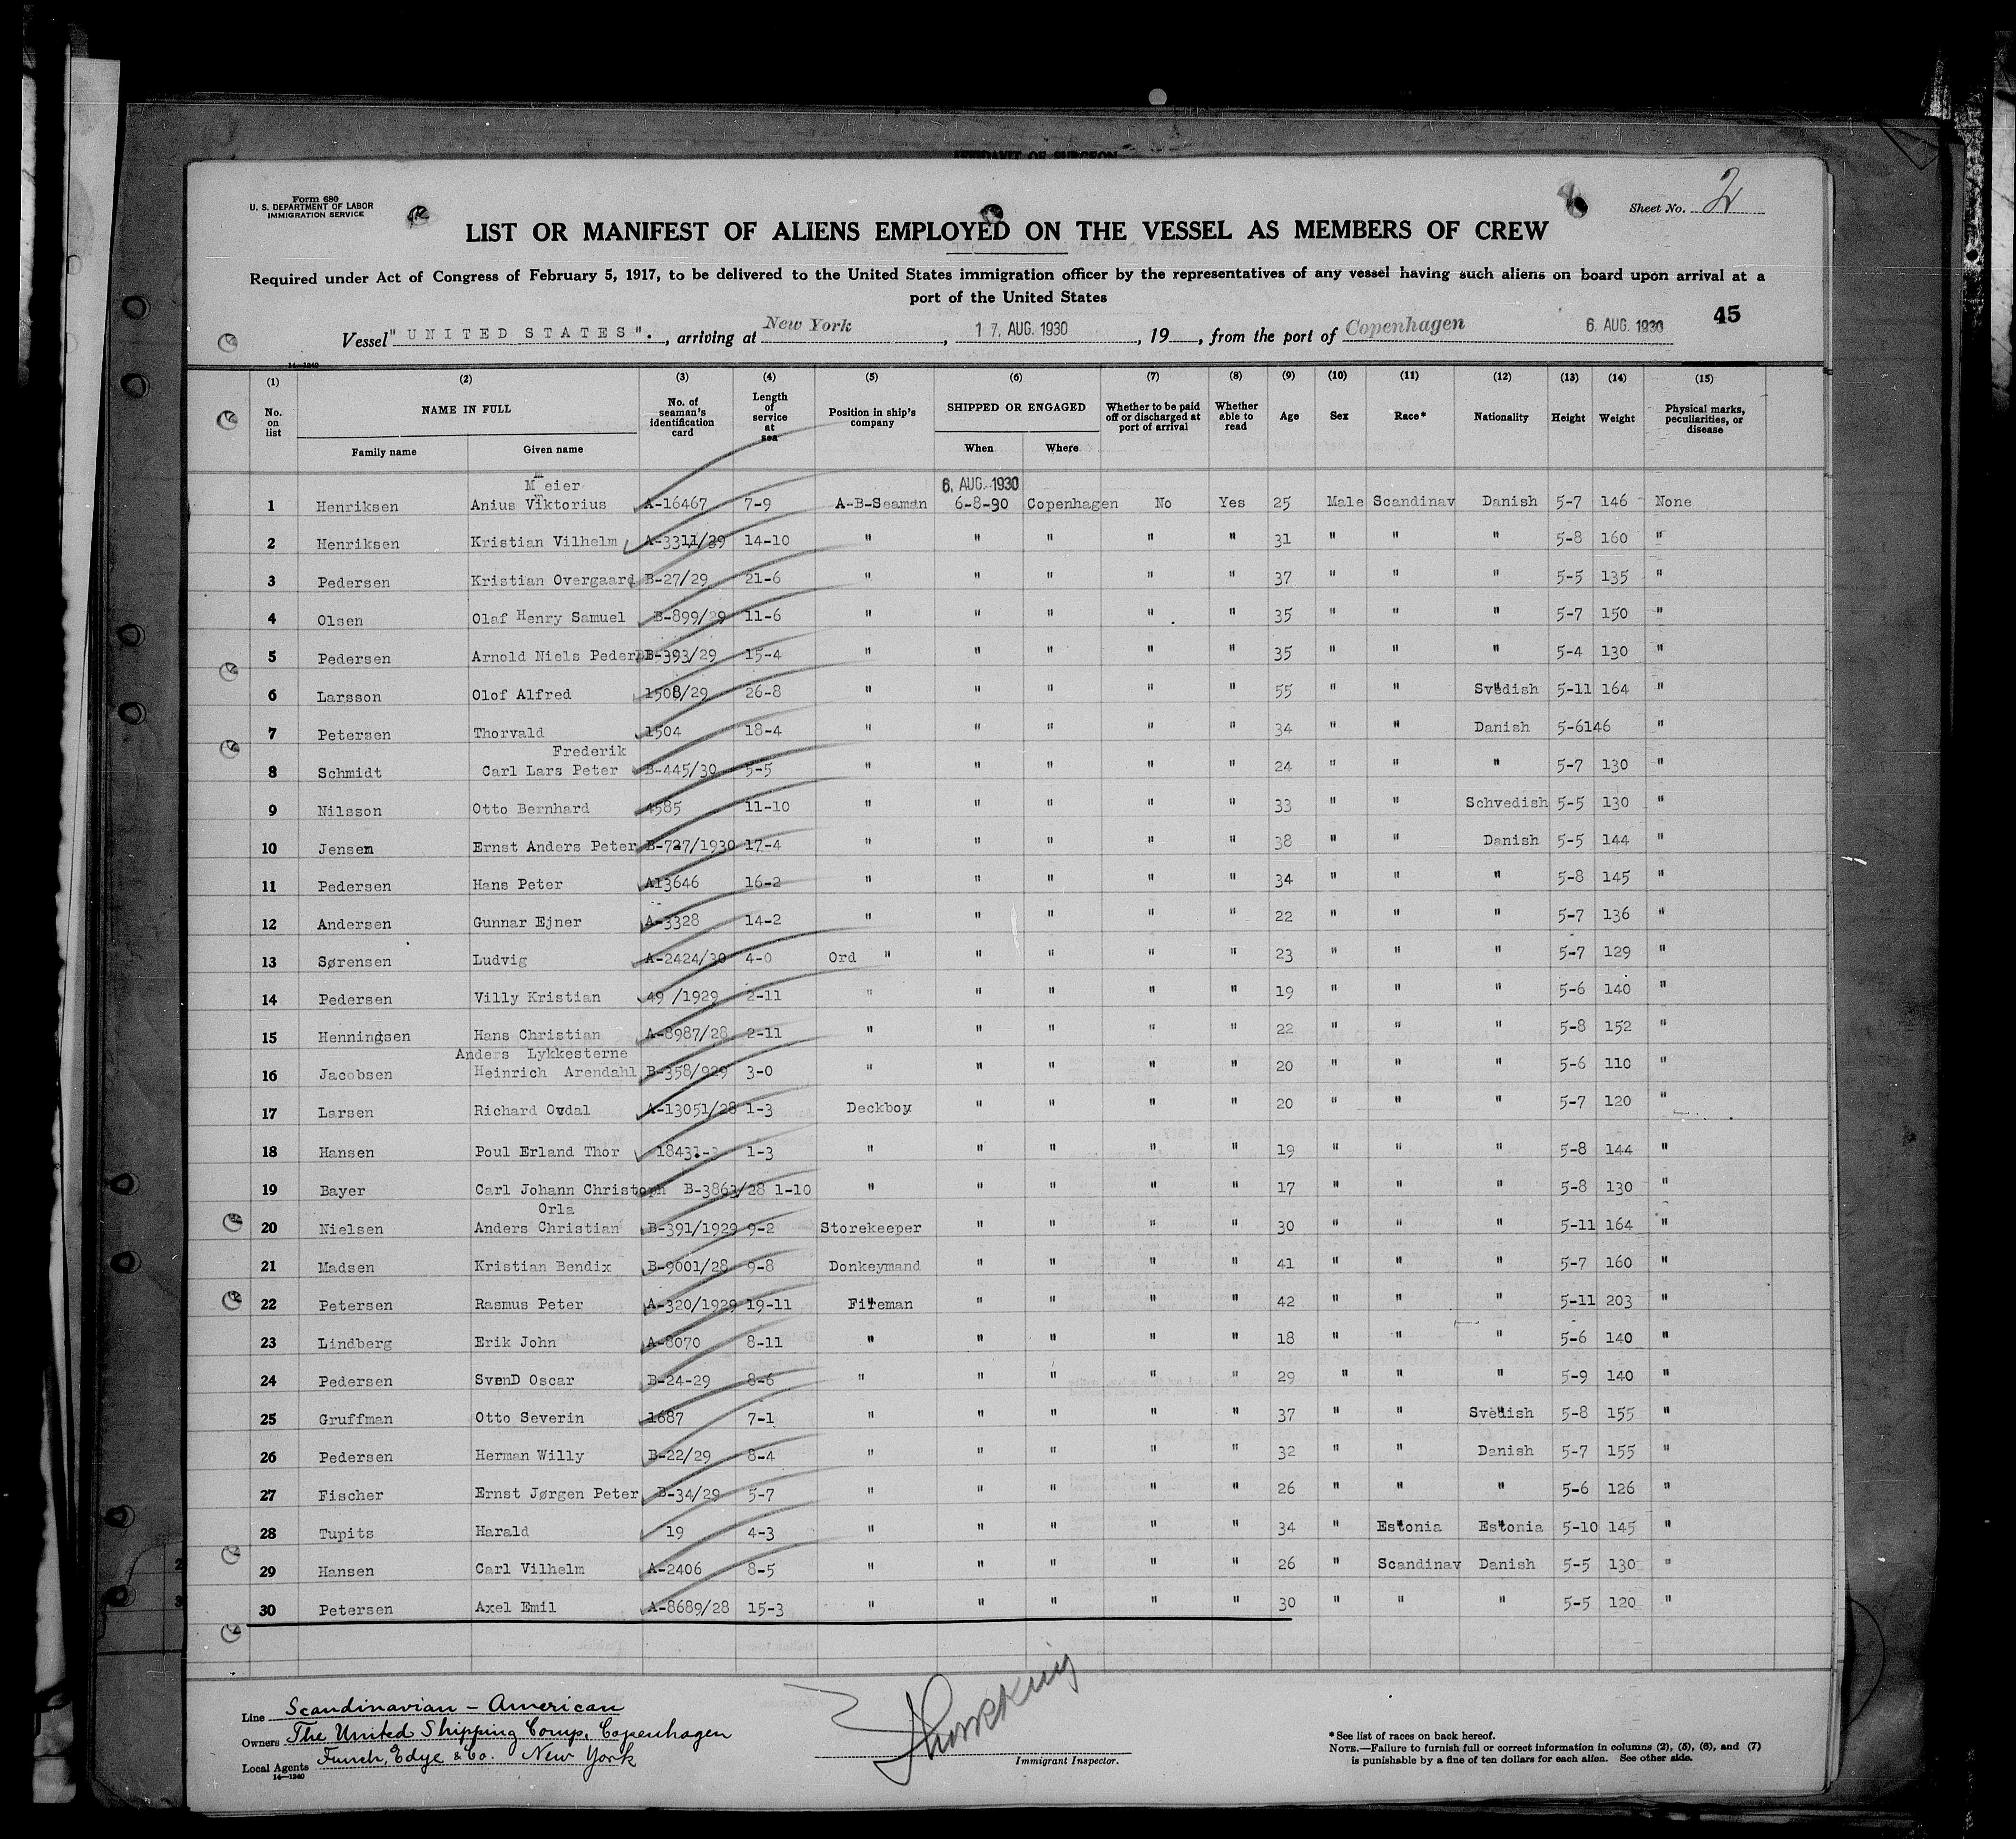 AFFIDAVIT OF SURGEON
Form 680
U. S. DEPARTMENT OF LABOR
IMMIGRATION SERVICE
Sheet No. 2
LIST OR MANIFEST OF ALIENS EMPLOYED ON THE VESSEL AS MEMBERS OF CREW
Required under Act of Congress of February 5, 1917, to be delivered to the United States immigration officer by the representatives of any vessel having such aliens on board upon arrival at a
port of the United States
45
Vessel "UNITED STATES". , arriving at New York , 17. AUG. 1930 , 19 , from the port of Copenhagen 6. AUG. 1930
14—1240
(1) (2) (3) (4) (5) (6) (7) (8) (9) (10) (11) (12) (13) (14) (15)
No. on list NAME IN FULL Family name Given name No. of seaman's identification card Length of service at sea Position in ship's company SHIPPED OR ENGAGED When Where Whether to be paid off or discharged at port of arrival Whether able to read Age Sex Race* Nationality Height Weight Physical marks, peculiarities, or disease
Meier 6. AUG. 1930
1 Henriksen Anius Viktorius A-16467 7-9 A-B-Seaman 6-8-90 Copenhagen No Yes 25 Male Scandinav Danish 5-7 146 None
2 Henriksen Kristian Vilhelm A-3311/29 14-10 " " " " " 31 " " " 5-8 160 "
3 Pedersen Kristian Overgaard B-27/29 21-6 " " " " " 37 " " " 5-5 135 "
4 Olsen Olaf Henry Samuel B-899/29 11-6 " " " " " 35 " " " 5-7 150 "
5 Pedersen Arnold Niels Peder B-393/29 15-4 " " " " " 35 " " " 5-4 130 "
6 Larsson Olof Alfred 1508/29 26-8 " " " " " 55 " " Svedish 5-11 164 "
7 Petersen Thorvald 1504 18-4 " " " " " 34 " " Danish 5-6146 "
Frederik
8 Schmidt Carl Lars Peter B-445/30 5-5 " " " " " 24 " " " 5-7 130 "
9 Nilsson Otto Bernhard 4585 11-10 " " " " " 33 " " Schvedish 5-5 130 "
10 Jensen Ernst Anders Peter B-727/1930 17-4 " " " " " 38 " " Danish 5-5 144 "
11 Pedersen Hans Peter A13646 16-2 " " " " " 34 " " " 5-8 145 "
12 Andersen Gunnar Ejner A-3328 14-2 " " " " " 22 " " " 5-7 136 "
13 Sørensen Ludvig A-2424/30 4-0 Ord " " " " " 23 " " " 5-7 129 "
14 Pedersen Villy Kristian 49 /1929 2-11 " " " " " 19 " " " 5-6 140 "
15 Henningsen Hans Christian A-8987/28 2-11 " " " " " 22 " " " 5-8 152 "
Anders Lykkesterne
16 Jacobsen Heinrich Arendahl B-358/929 3-0 " " " " " 20 " " " 5-6 110 "
17 Larsen Richard Ovdal A-13051/28 1-3 Deckboy " " " " 20 " " " 5-7 120 "
18 Hansen Poul Erland Thor 1-3 " " " " " 19 " " " 5-8 144 "
19 Bayer Carl Johann Christoph B-3863/28 1-10 " " " " " 17 " " " 5-8 130 "
Orla
20 Nielsen Anders Christian B-391/1929 9-2 Storekeeper " " " " 30 " " " 5-11 164 "
21 Madsen Kristian Bendix B-9001/28 9-8 Donkeymand " " " " 41 " " " 5-7 160 "
22 Petersen Rasmus Peter A-320/1929 19-11 Fireman " " " " 42 " " " 5-11 203 "
23 Lindberg Erik John A-8070 8-11 " " " " " 18 " " " 5-6 140 "
24 Pedersen SvenD Oscar B-24-29 8-6 " " " " " 29 " " " 5-9 140 "
25 Gruffman Otto Severin 1687 7-1 " " " " " 37 " " Svedish 5-8 155 "
26 Pedersen Herman Willy B-22/29 8-4 " " " " " 32 " " Danish 5-7 155 "
27 Fischer Ernst Jørgen Peter B-34/29 5-7 " " " " " 26 " " " 5-6 126 "
28 Tupits Harald 19 4-3 " " " " " 34 " Estonia Estonia 5-10 145 "
29 Hansen Carl Vilhelm A-2406 8-5 " " " " " 26 " Scandinav Danish 5-5 130 "
30 Petersen Axel Emil A-8689/28 15-3 " " " " " 30 " " " 5-5 120 "
Line Scandinavian - American
Owners The United Shipping Comp, Copenhagen
Local Agents Funch, Edye & Co. New York
14—1240
Immigrant Inspector.
*See list of races on back hereof.
NOTE.—Failure to furnish full or correct information in columns (2), (5), (6), and (7)
is punishable by a fine of ten dollars for each alien. See other side.